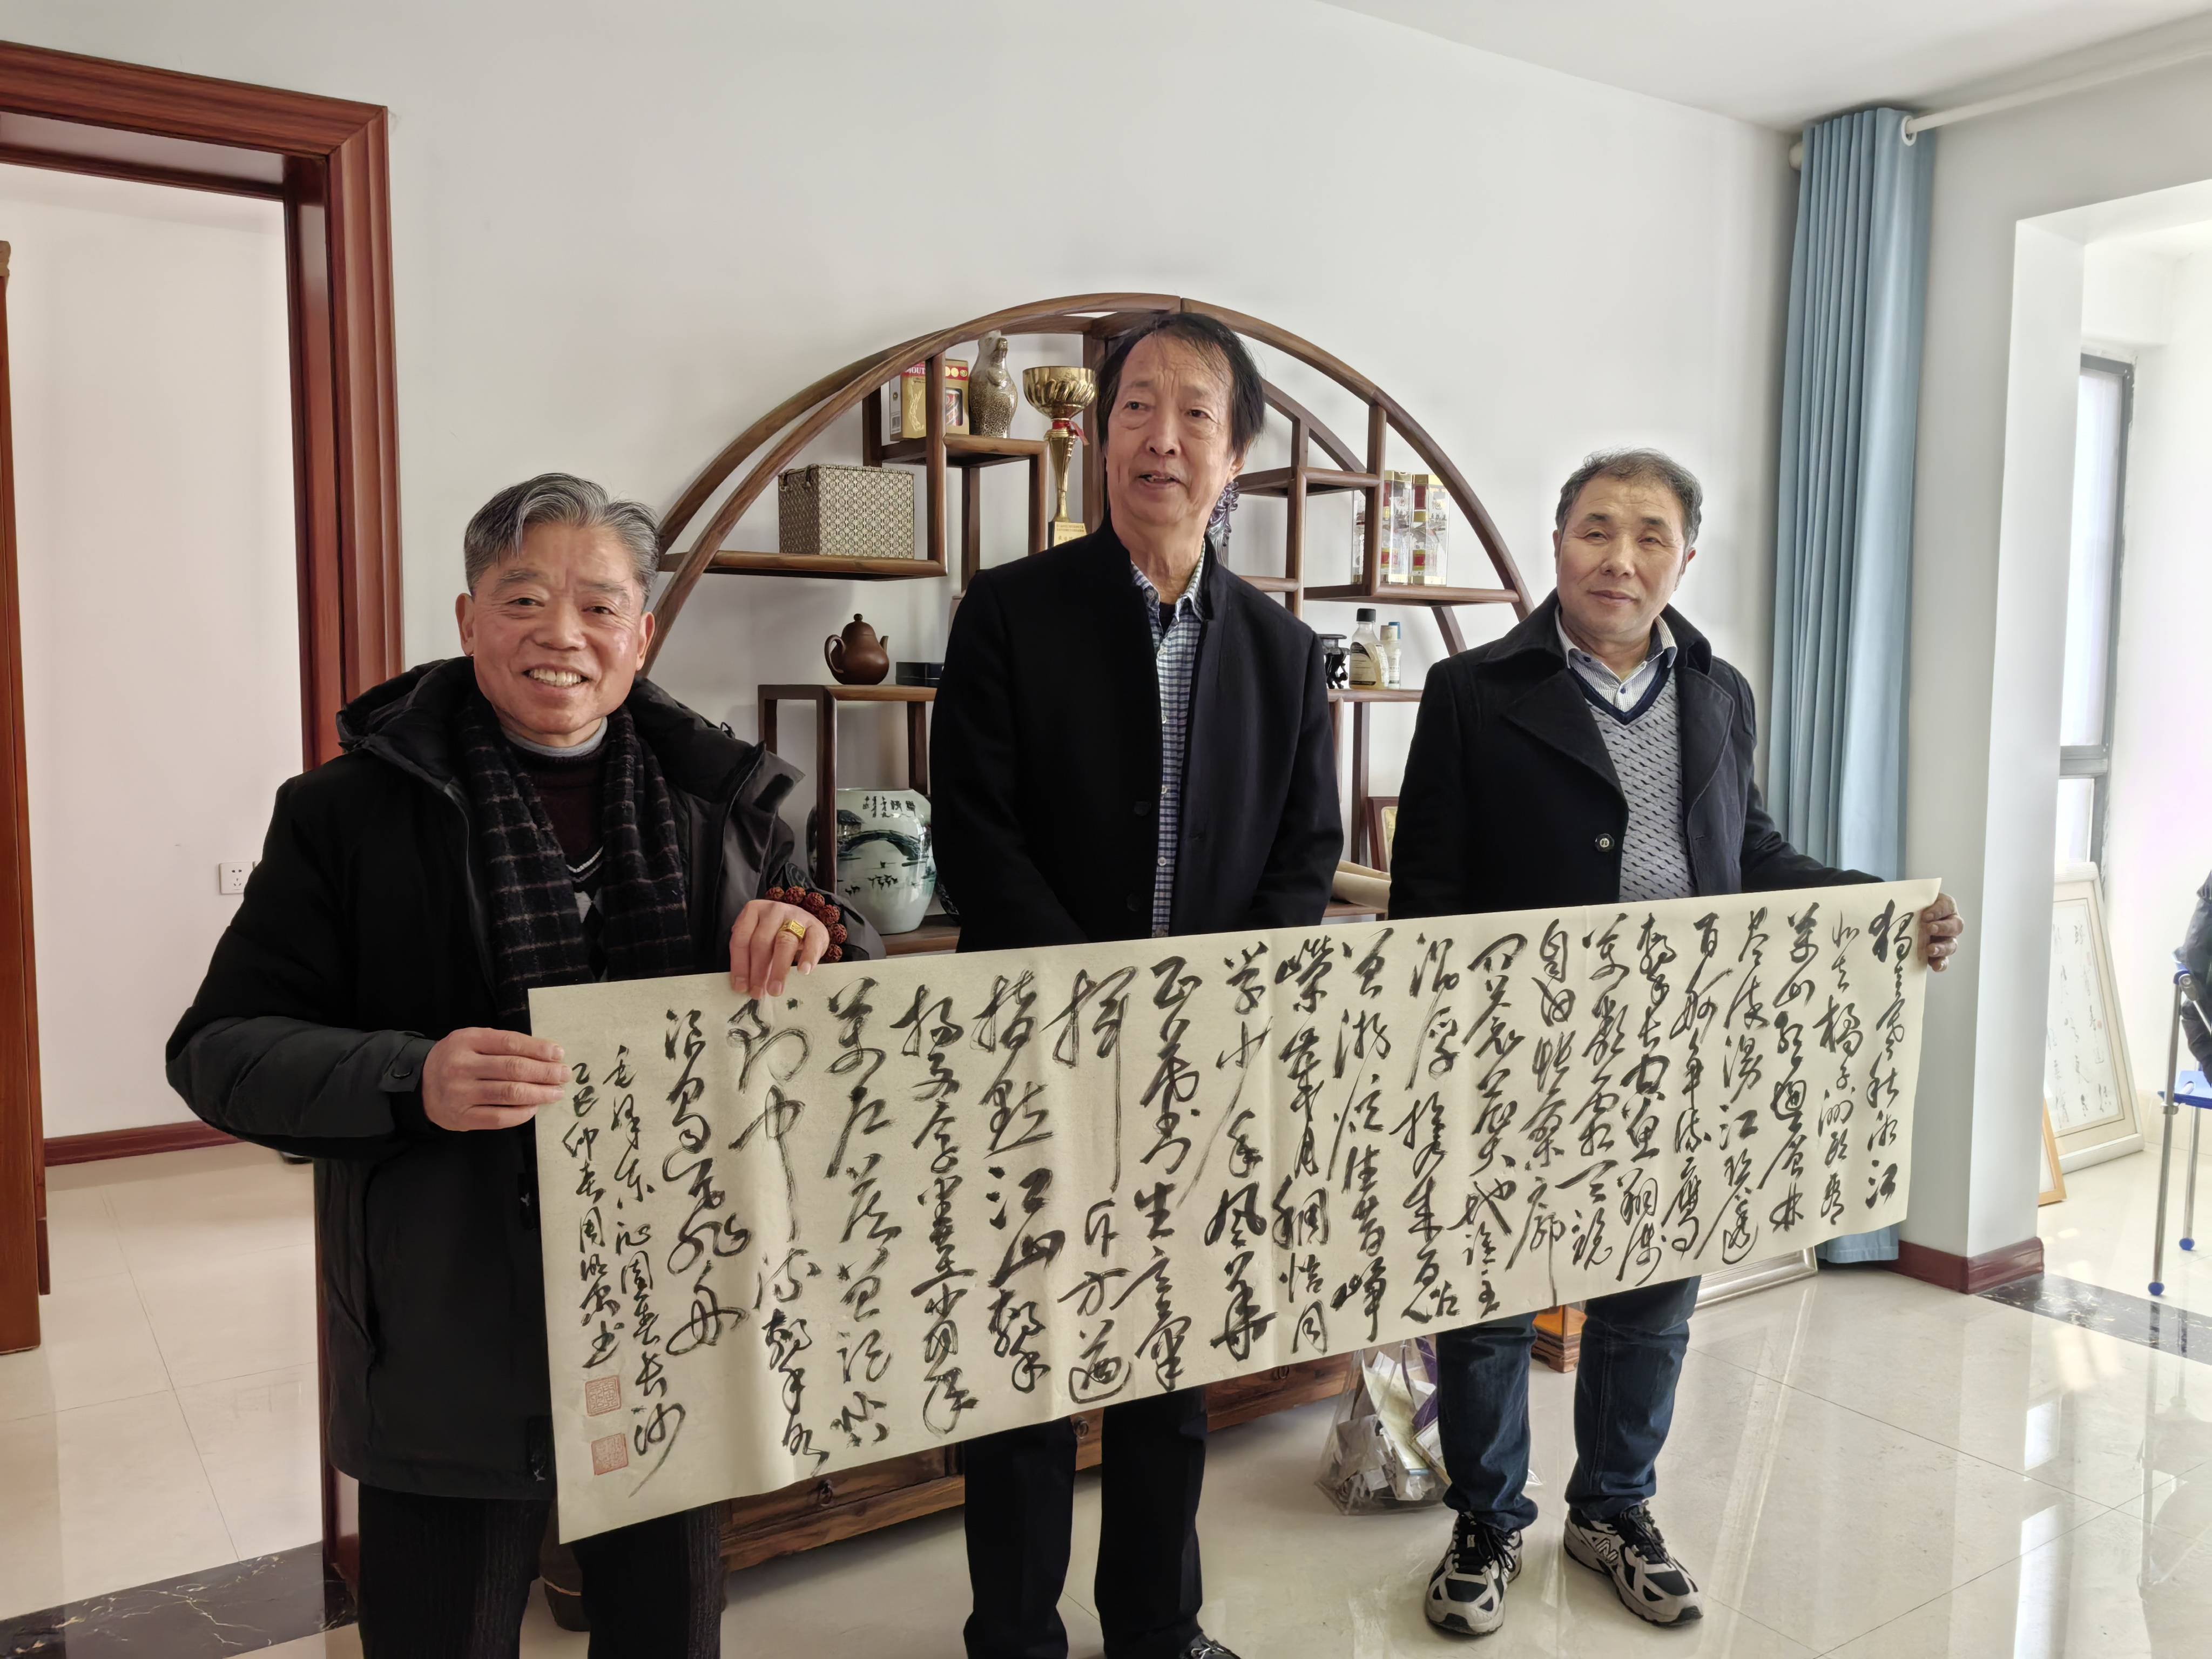 独立寒秋湘江
北去橘子洲头看
万山红遍层林
尽染漫江碧透
百舸争流鹰
击长空鱼翔浅
底万类霜天竞
自由怅寥廓
问苍茫大地谁主
沉浮携来百侣
曾游忆往昔峥
嵘岁月稠恰同
学少年风华
正茂书生意气
挥斥方遒
指点江山激
扬文字粪土当年
万户侯曾记否
到中流击水
浪遏飞舟
毛泽东沁园春长沙
乙巳仲春周